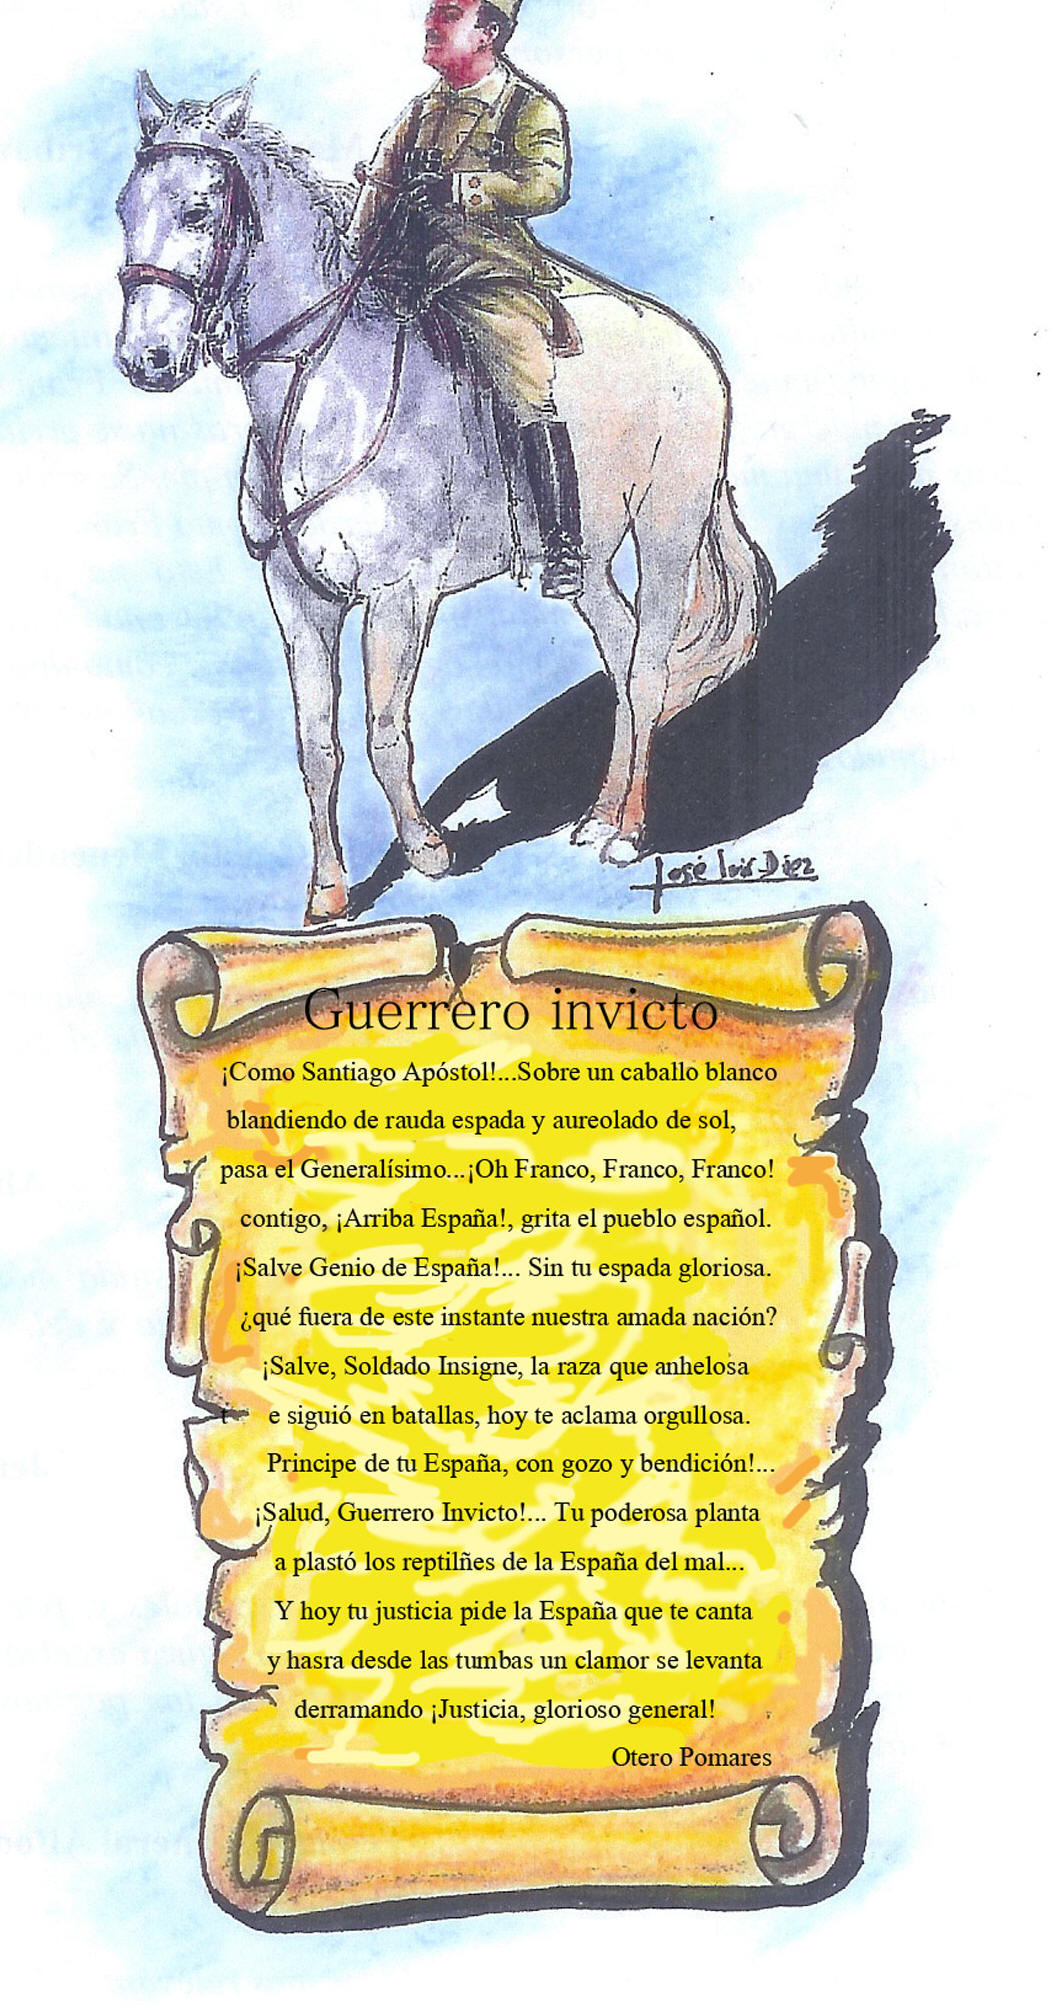 José Luis Díez
Guerrero invicto
¡Como Santiago Apóstol!...Sobre un caballo blanco
blandiendo de rauda espada y aureolado de sol,
pasa el Generalísimo...¡Oh Franco, Franco, Franco!
contigo, ¡Arriba España!, grita el pueblo español.
¡Salve Genio de España!... Sin tu espada gloriosa.
¿qué fuera de este instante nuestra amada nación?
¡Salve, Soldado Insigne, la raza que anhelosa
t e siguió en batallas, hoy te aclama orgullosa.
Principe de tu España, con gozo y bendición!...
¡Salud, Guerrero Invicto!... Tu poderosa planta
a plastó los reptilñes de la España del mal...
Y hoy tu justicia pide la España que te canta
y hasra desde las tumbas un clamor se levanta
derramando ¡Justicia, glorioso general!
Otero Pomares